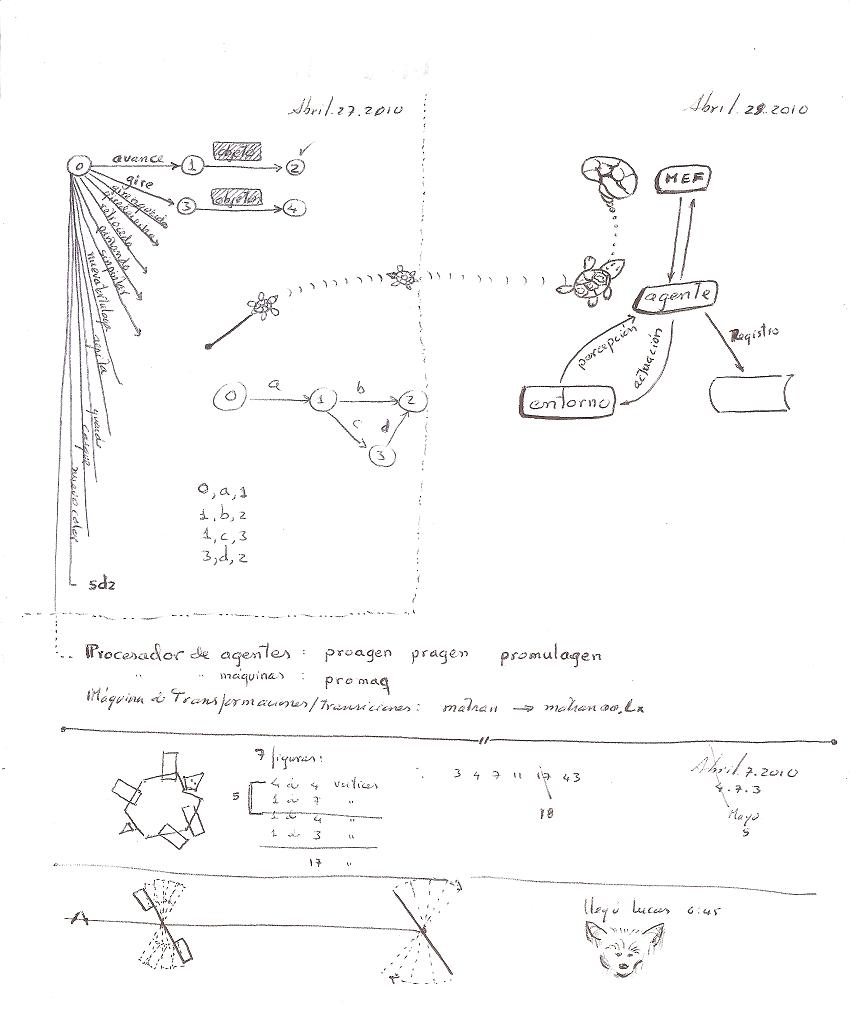 Abril.27.2010
0 avance 1 objeto 2
gire 3 objeto 4
giraizquierda
giraderecha
retroceda
pintando
sinpintar
nuevatortuga
repita
nuevocolor
sdz
0 a 1 b 2
c d
3
0,a,1
1,b,2
1,c,3
3,d,2
Abril.28.2010
MEF
agente
percepción
actuación
Registro
entorno
Procesador de agentes : proagen pragen promulagen
" " máquinas : promaq
Máquina de Transformaciones/transiciones: matran → matran00.Lx
7 figuras:
4 de 4 vertices
5
1 de 7 "
1 de 4 "
1 de 3 "
17 "
3 4 7 11 17 43
18
Abril.7.2010
4.7.3
Mayo
5
A
llegó Lucas 6:45